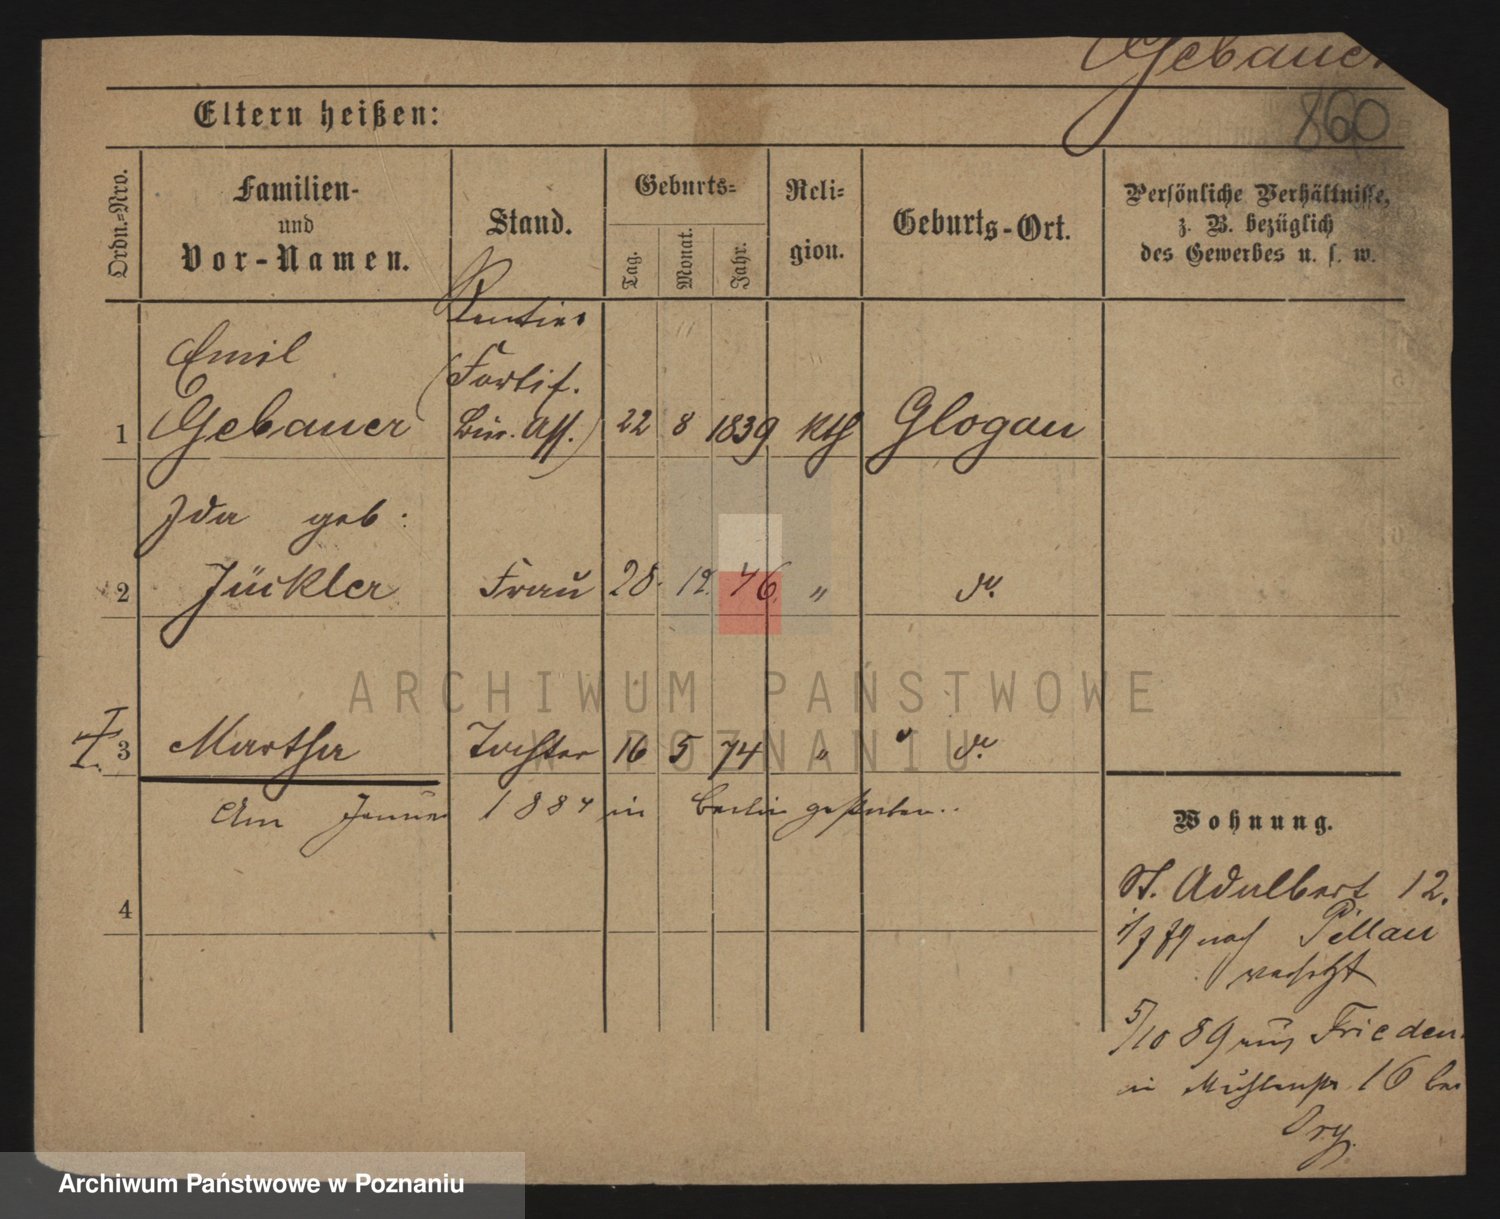 Gebauer
860
Eltern heißen:
Ordn.=Nro.
Familien-
und
Vor-Namen.
Stand.
Geburts=
Tag.
Monat.
Jahr.
Reli=
gion.
Geburts-Ort.
Persönliche Verhältnisse,
z. B. bezüglich
des Gewerbes u. s. w.
Rentier
Emil
(Fortif.
1 Gebauer Bür. Ass.) 22 8 1839 Kth Glogau
Ida geb:
2 Jückler Frau 28. 12. 46. " do.
3 Martha Tochter 16 5 74 " do.
Am Januar 1884 in Berlin gestorben..
4
Wohnung.
St. Adalbert 12.
1/7 79 nach Pillau
versetzt
5/10 89 aus Frieden.
in Mühlenstr. 16 bei
Ory.
ARCHIWUM PAŃSTWOWE
W POZNANIU
Archiwum Państwowe w Poznaniu